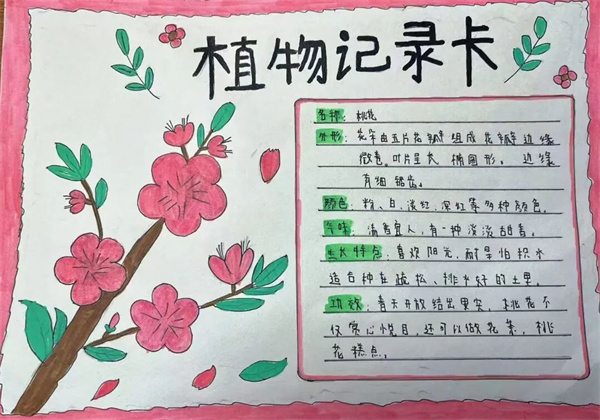 植物记录卡
名称: 桃花
外形: 花朵由五片花瓣组成花瓣边缘
微卷。叶片呈长椭圆形。边缘
有细锯齿。
颜色: 粉、白、淡红、深红等多种颜色。
气味: 清香宜人,有一种淡淡甜香。
生长特点: 喜欢阳光,耐旱怕积水
适合种在疏松、排水好的土里。
功效: 春天开放结出果实,桃花不
仅赏心悦目,还可以做花茶,桃
花糕点。